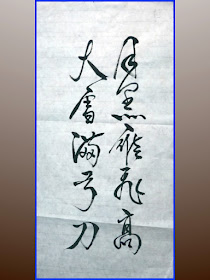 月黑雁飛高
大雪滿弓刀